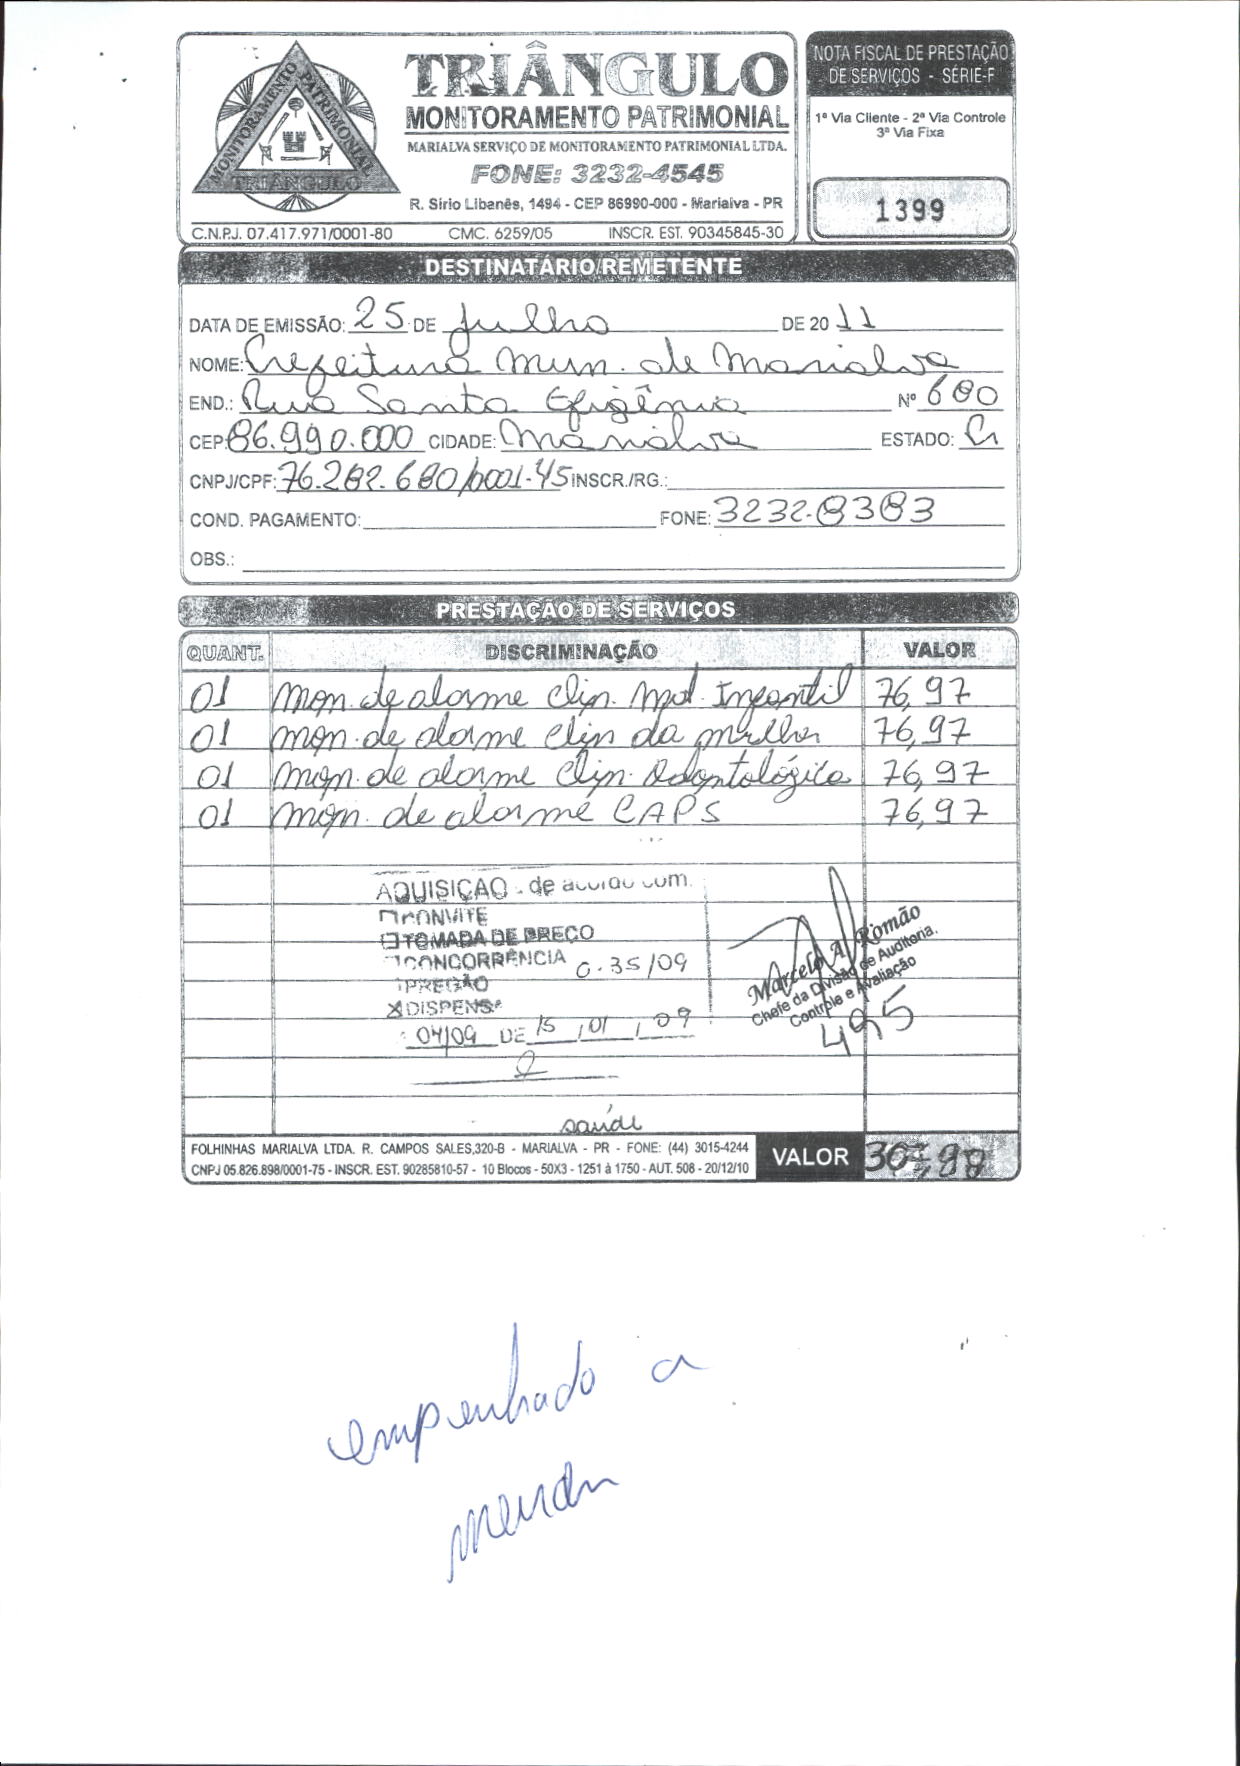 MONITORAMENTO PATRIMONIAL
TRIÂNGULO
TRIÂNGULO
MONITORAMENTO PATRIMONIAL
MARIALVA SERVIÇO DE MONITORAMENTO PATRIMONIAL LTDA.
FONE: 3232-4545
R. Sírio Libanês, 1494 - CEP 86990-000 - Marialva - PR
C.N.P.J. 07.417.971/0001-80 CMC. 6259/05 INSCR. EST. 90345845-30
NOTA FISCAL DE PRESTAÇÃO
DE SERVIÇOS - SÉRIE-F
1ª Via Cliente - 2ª Via Controle
3ª Via Fixa
1399
DESTINATÁRIO/REMETENTE
DATA DE EMISSÃO: 25 DE Julho DE 2011
NOME: Prefeitura Mun. de Marialva
END.: Rua Santa Efigênia Nº 680
CEP: 86.990.000 CIDADE: Marialva ESTADO: Pr
CNPJ/CPF: 76.282.680/0001-45 INSCR./RG.:
COND. PAGAMENTO: FONE: 3232-8383
OBS.:
PRESTAÇÃO DE SERVIÇOS
QUANT. DISCRIMINAÇÃO VALOR
01 Mon. de alarme Clin. Mat. Infantil 76,97
01 Mon. de alarme Clin da mulher 76,97
01 Mon. de alarme Clin. Odontológica 76,97
01 Mon. de alarme CAPS 76,97
AQUISIÇÃO - de acordo com.
CONVITE
TOMADA DE PREÇO
CONCORRÊNCIA C. 35/09
PREGÃO
X DISPENSA
04/09 DE 15/01/09
Marcelo A. Romão
Chefe da Divisão de Auditoria,
Controle e Avaliação
495
saúde
FOLHINHAS MARIALVA LTDA. R. CAMPOS SALES,320-B - MARIALVA - PR - FONE: (44) 3015-4244
CNPJ 05.826.898/0001-75 - INSCR. EST. 90285810-57 - 10 Blocos - 50X3 - 1251 à 1750 - AUT. 508 - 20/12/10
VALOR 307,88
empenhado a